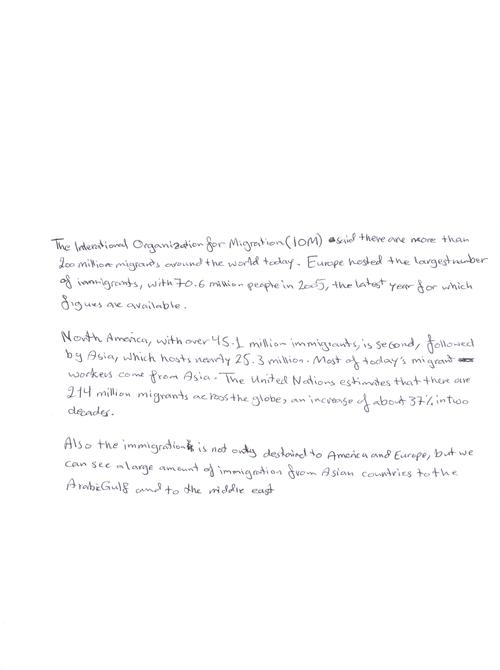 The International Organization for Migration (IOM) said there are more than
200 million migrants around the world today. Europe hosted the largest number
of immigrants, with 70.6 million people in 2005, the latest year for which
figues are available.
North America, with over 45.1 million immigrants, is second, followed
by Asia, which hosts nearly 25.3 million. Most of today's migrant
workers come from Asia. The United Nations estimates that there are
214 million migrants across the globe, an increase of about 37% in two
decades.
Also the immigration is not only destained to America and Europe, but we
can see a large amount of immigration from Asian countries to the
Arabic Gulf and to the middle east